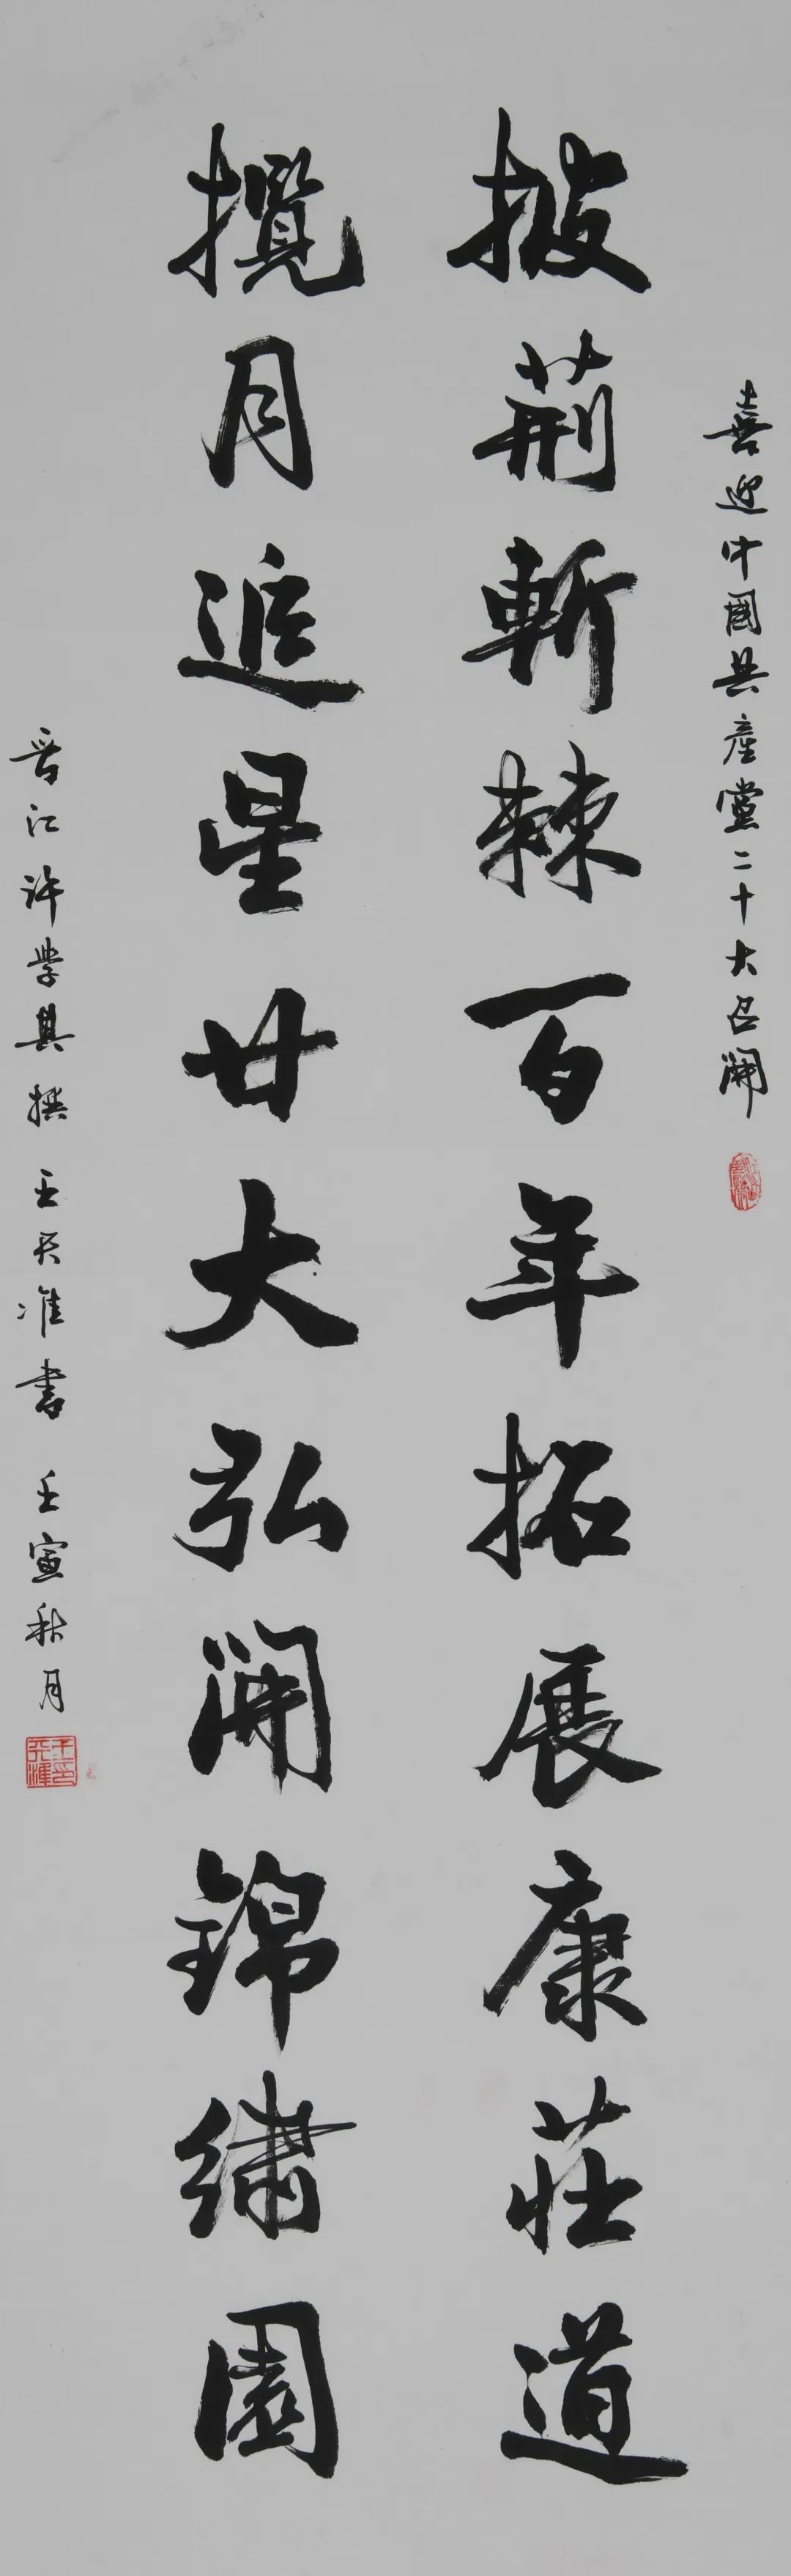 喜迎中國共產黨二十大召開
披荆斬棘百年拓展康莊道
攬月追星廿大弘開錦繡園
晋江許學具撰 王天准書 壬寅秋月